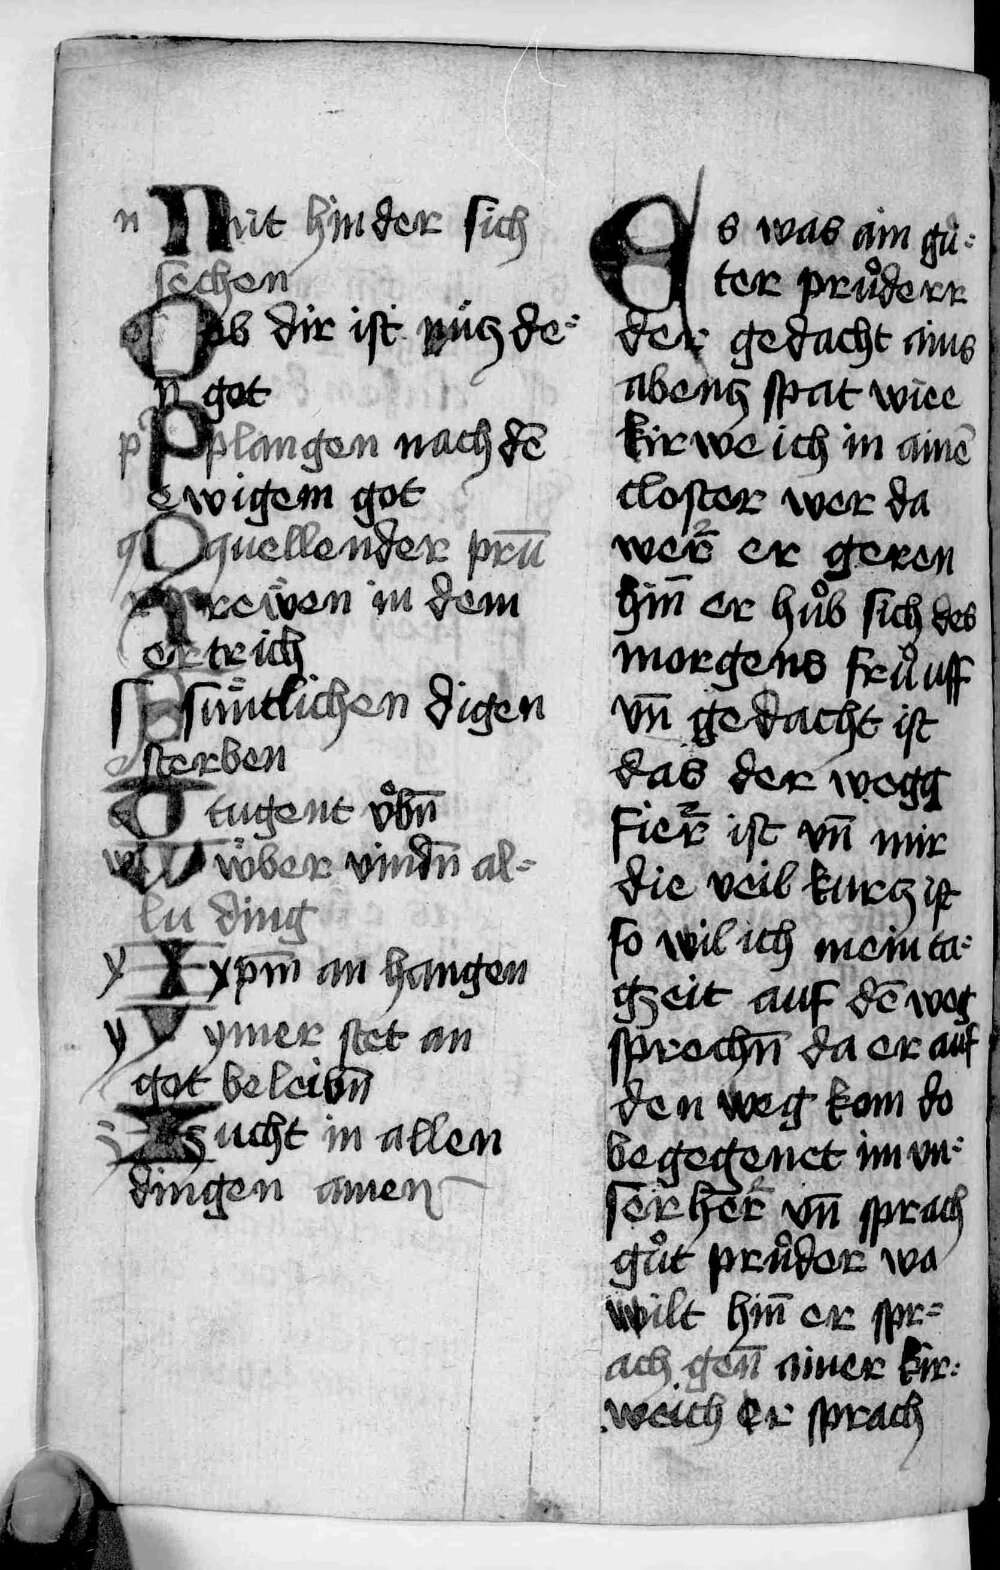 n Nut hinder sich
sechen
o Oob dir ist nuͤtz de⸗
n got
p Pplangen nach dē
ewigem got
q Qquellender prū̄
r Rreẅen in dem
ertrich
s Ssüntlichen digen
sterben
T tugent vͦbn̄
w W wͦber vindn̄ al⸗
lu ding
y X xp̄m an hangen
y Y ymer stet an
got beleibn̄
z Zzucht in allen
dingen amen
Es was ain guͦ⸗
ter pruͦderr
der gedacht ains
abentz spat wiee
kirweich in ainē
closter wer da
wer̄ er geren
hin̄ er huͦb sich des
morgens fruͦ uff
vn̄ gedacht ist
das der wegg
fier̄ ist vn̄ mir
die veil kurtz ist
so wil ich mein ta⸗
gzeit auf dē weg
sprechn̄ da er auf
den weg kom do
begegenet im vn⸗
ser her̄ vn̄ sprach
guͦt pruͦder wa
wilt hin̄ er spr⸗
ach gen̄ ainer kir⸗
weich er sprach